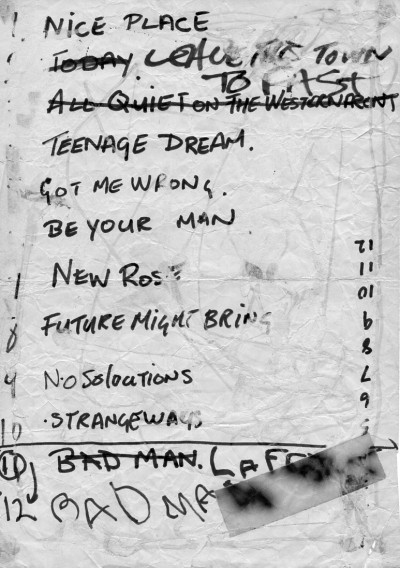 1 NICE PLACE
TODAY LEAVE TOWN
TO FAST
ALL QUIET ON THE WESTERN FRONT
TEENAGE DREAM.
GOT ME WRONG.
BE YOUR MAN
12
11
1 NEW ROSE
10
8 FUTURE MIGHT BRING 9
8
9 NO SOLOUTIONS 7
6
10 STRANGEWAYS 5
11 BAD MAN.
12 BAD